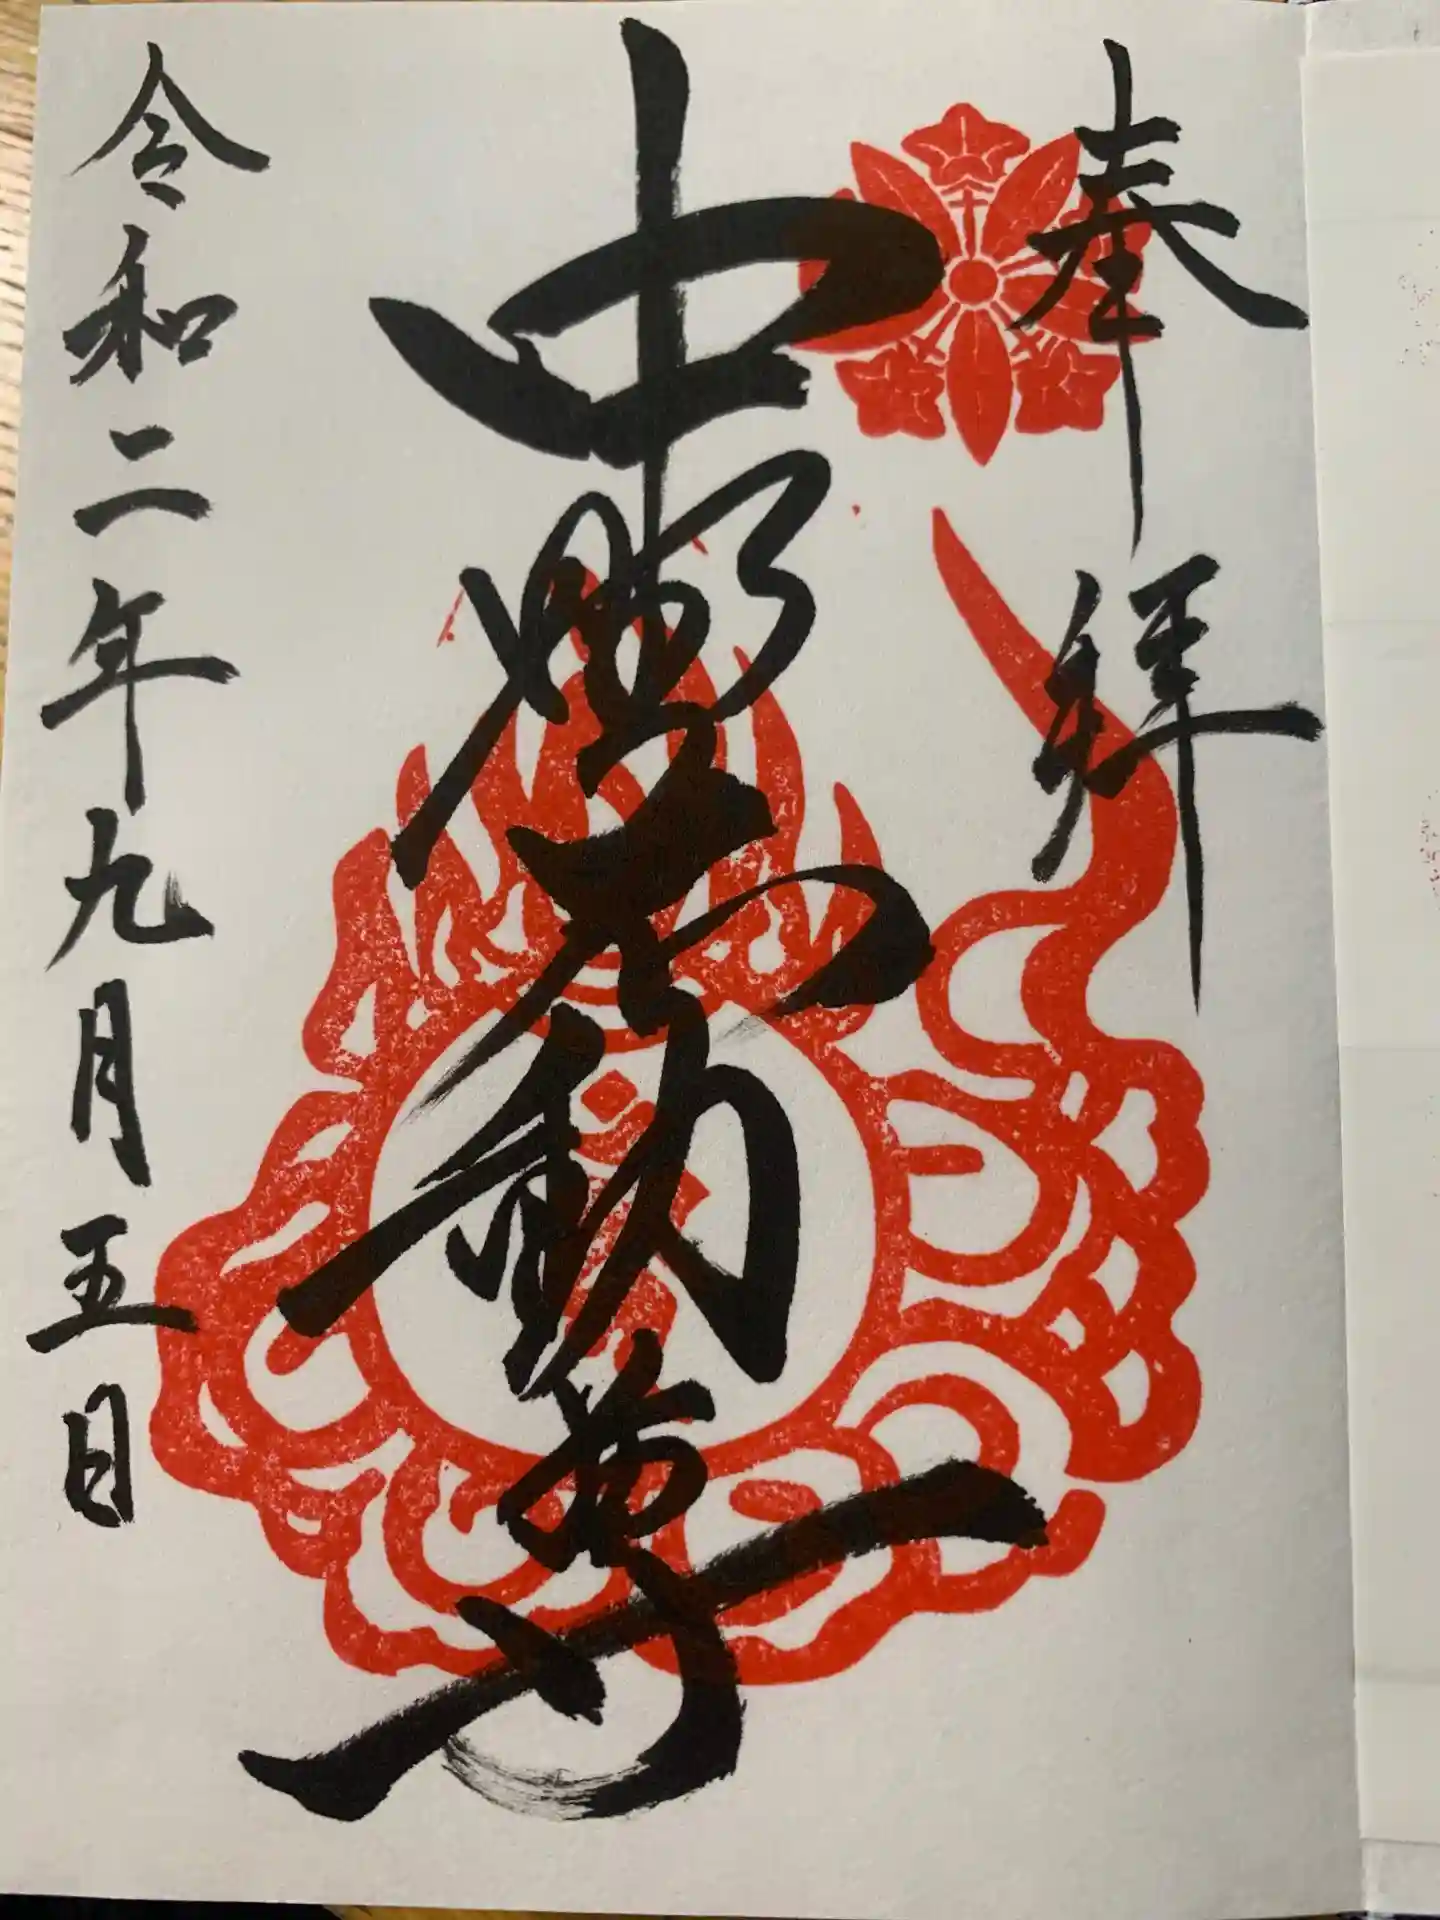 奉拝
中興不動尊
令和二年九月五日